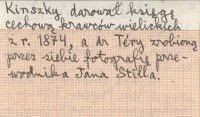 Kinszky, darował księgę
cechową krawców wielickich
z r. 1874, a dr Téry zrobioną
przez siebie fotografię prze-
wodnika Jana Stilla.